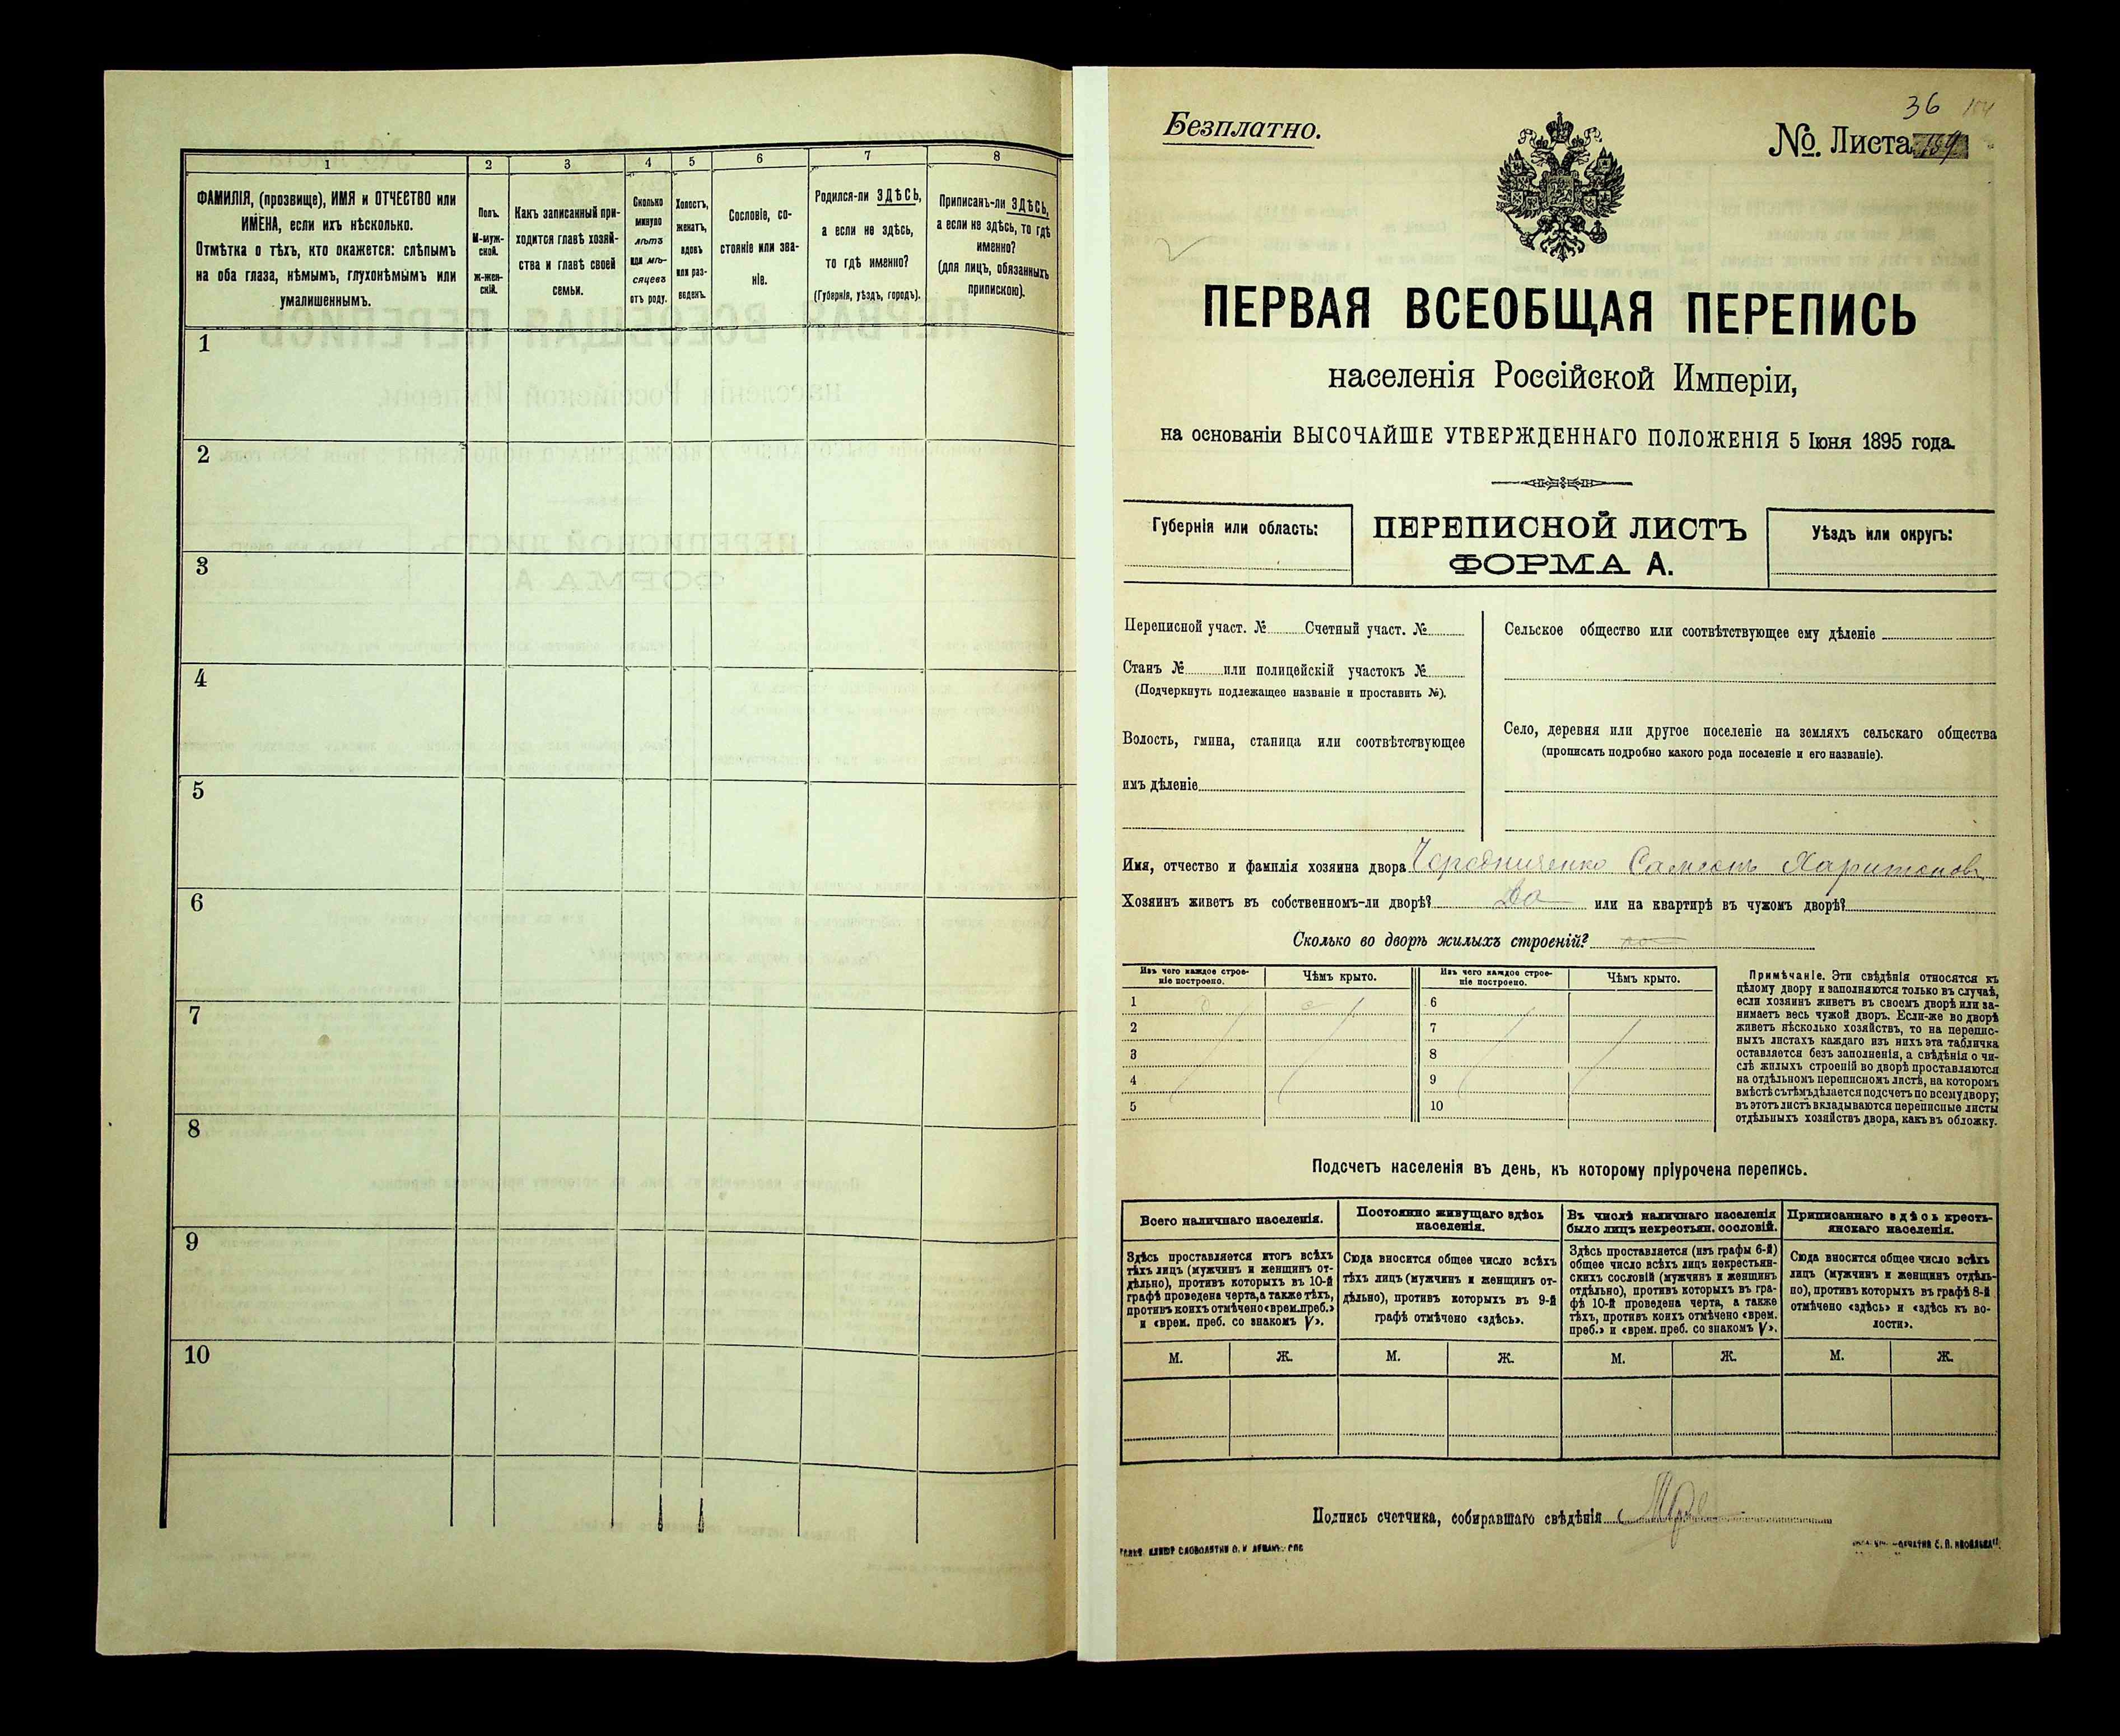 1 2 3 4 5 6 7 8
ФАМИЛІЯ, (прозвище), ИМЯ и ОТЧЕСТВО или
ИМЕНА, если ихъ нѣсколько.
Отмѣтка о тѣхъ, кто окажется: слѣпымъ
на оба глаза, нѣмымъ, глухонѣмымъ или
умалишеннымъ.
Полъ.
М-муж-
ской.
ж-жен-
скій.
Какъ записанный при-
ходится главѣ хозяй-
ства и главѣ своей
семьи.
Сколько
минуло
лѣтъ
или мѣ-
сяцевъ
отъ роду.
Холостъ,
женатъ,
вдовъ
или раз-
веденъ.
Сословіе, со-
стояніе или зва-
ніе.
Родился-ли ЗДѢСЬ,
а если не здѣсь,
то гдѣ именно?
(Губернія, уѣздъ, городъ).
Приписанъ-ли ЗДѢСЬ,
а если не здѣсь, то гдѣ
именно?
(для лицъ, обязанныхъ
припискою).
1
2
3
4
5
6
7
8
9
10
36
Безплатно.
№. Листа
ПЕРВАЯ ВСЕОБЩАЯ ПЕРЕПИСЬ
населенія Россійской Имперіи,
на основаніи ВЫСОЧАЙШЕ УТВЕРЖДЕННАГО ПОЛОЖЕНІЯ 5 Іюня 1895 года.
Губернія или область:
ПЕРЕПИСНОЙ ЛИСТЪ
ФОРМА А.
Уѣздъ или округъ:
Переписной участ. № Счетный участ. №
Станъ № или полицейскій участокъ №
(Подчеркнуть подлежащее названіе и проставить №).
Волость, гмина, станица или соотвѣтствующее
имъ дѣленіе
Сельское общество или соотвѣтствующее ему дѣленіе
Село, деревня или другое поселеніе на земляхъ сельскаго общества
(прописать подробно какого рода поселеніе и его названіе).
Имя, отчество и фамилія хозяина двора Чередниченко Самсонъ Харитоновъ
Хозяинъ живетъ въ собственномъ-ли дворѣ? Да или на квартирѣ въ чужомъ дворѣ?
Сколько во дворѣ жилыхъ строеній?
Изъ чего каждое строе-
ніе построено.
Чѣмъ крыто.
Изъ чего каждое строе-
ніе построено.
Чѣмъ крыто.
1 д с 6
2 7
3 8
4 9
5 10
Примѣчаніе. Эти свѣдѣнія относятся къ
цѣлому двору и заполняются только въ случаѣ,
если хозяинъ живетъ въ своемъ дворѣ или за-
нимаетъ весь чужой дворъ. Если-же во дворѣ
живетъ нѣсколько хозяйствъ, то на перепис-
ныхъ листахъ каждаго изъ нихъ эта табличка
оставляется безъ заполненія, а свѣдѣнія о чи-
слѣ жилыхъ строеній во дворѣ проставляются
на отдѣльномъ переписномъ листѣ, на которомъ
вмѣстѣ съ тѣмъ дѣлается подсчетъ по всему двору;
въ этотъ листъ вкладываются переписные листы
отдѣльныхъ хозяйствъ двора, какъ въ обложку.
Подсчетъ населенія въ день, къ которому пріурочена перепись.
Всего наличнаго населенія.
Постоянно живущаго здѣсь
населенія.
Въ числѣ наличнаго населенія
было лицъ некрестьян. сословій.
Приписаннаго здѣсь кресть-
янскаго населенія.
Здѣсь проставляется итогъ всѣхъ
тѣхъ лицъ (мужчинъ и женщинъ от-
дѣльно), противъ которыхъ въ 10-й
графѣ проведена черта, а также тѣхъ,
противъ коихъ отмѣчено «врем. преб.»
и «врем. преб. со знакомъ V».
Сюда вносится общее число всѣхъ
тѣхъ лицъ (мужчинъ и женщинъ от-
дѣльно), противъ которыхъ въ 9-й
графѣ отмѣчено «здѣсь».
Здѣсь проставляется (изъ графы 6-й)
общее число всѣхъ лицъ некрестьян-
скихъ сословій (мужчинъ и женщинъ
отдѣльно), противъ которыхъ въ гра-
фѣ 10-й проведена черта, а также
тѣхъ, противъ коихъ отмѣчено «врем.
преб.» и «врем. преб. со знакомъ V».
Сюда вносится общее число всѣхъ
лицъ (мужчинъ и женщинъ отдѣль-
но), противъ которыхъ въ графѣ 8-й
отмѣчено «здѣсь» и «здѣсь къ во-
лости».
М. Ж. М. Ж. М. Ж. М. Ж.
Подпись счетчика, собиравшаго свѣдѣнія